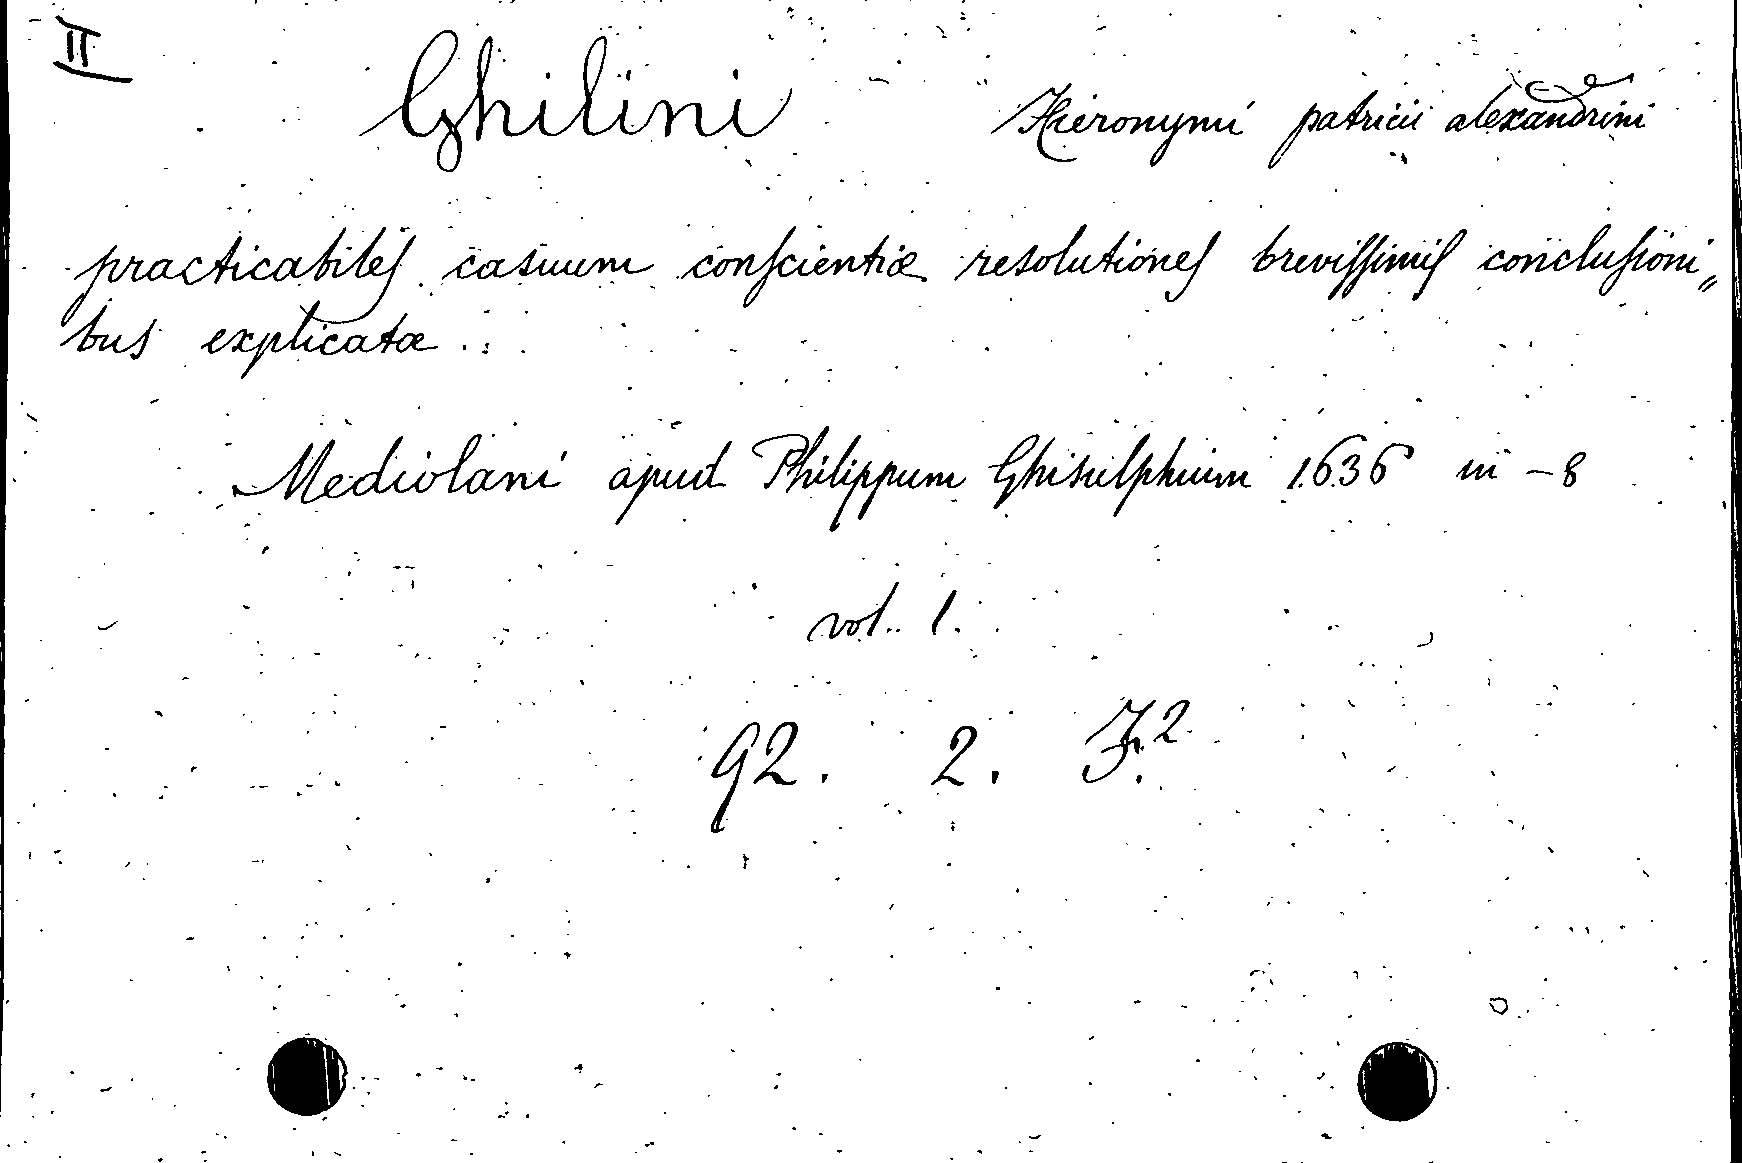 II
Ghilini Hieronymi patricii alexandrini
practicabiles casuum conscientiæ resolutiones brevissimis conclusioni„
bus explicatæ . :
Mediolani apud Philippum Ghisulphium 1636 in - 8
vol. 1.
92. 2. F.²